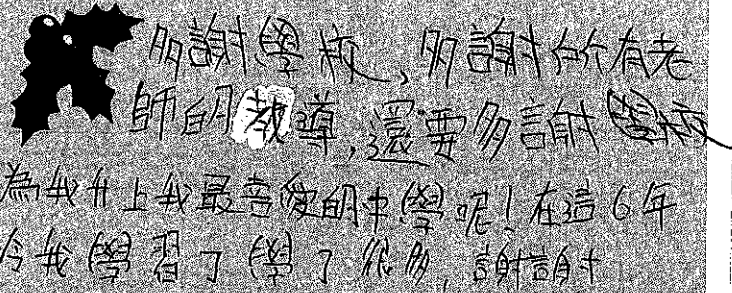 多謝學校,多謝所有老
師的教導,還要多謝學校
為我升上我最喜愛的中學呢!在這6年
令我學習了學了很多,謝謝